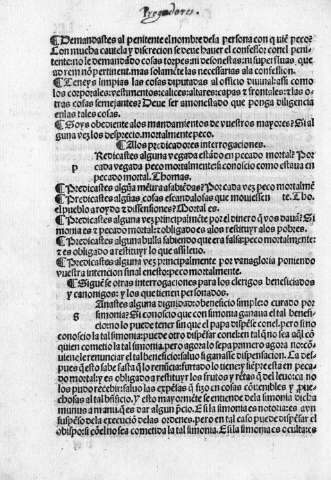 Pregadores.
¶Demandastes al penitente el nombre de la persona con quiẽ peco?
Con mucha cautela y discrecion se deue hauer el confessor conel peni
tente: no le demandado cosas torpes: ni desonestas: ni superfluas, que
ad rem nõ pertinent. mas solamẽte las necessarias ala confession.
¶Teneys limpias las cosas diputadas al officio diuinal: assi como
los corporales: vestimentos: calices: altares: capas y frontales: z las o
tras cosas semejantes? Deue ser amonestado que ponga diligencia
en las tales cosas.
¶Soys obediente alos mandamientos de vuestros mayores? Si al
guna vez los desprecio. mortalmente peco.
¶Alos predicadores interrogaciones.
Redicastes alguna vegada estãdo en pecado mortal? Por
p cada vegada peco mortalmente: si conoscio como estaua en
pecado mortal. Thomas.
¶Predicastes algũa mẽtira a sabiẽdas? Por cada vez peco mortalmẽ
¶Predicastes algũas cosas escandalosas que mouiessen te. Tho.
el pueblo a roydo z dissensiones? Mortal es.
¶Predicastes alguna vez principalmẽte por el dinero q̃ vos dauã? Si
monia es z pecado mortal: z obligado es alos restituyr alos pobres.
¶Predicastes alguna bulla sabiendo que era falsa: peco mortalmente:
z es obligado a restituyr lo que assi leuo.
¶Predicastes alguna vez principalmente por vanagloria poniendo
vuestra intencion final enesto: peco mortalmente.
¶Siguẽ se otras interrogaciones para los clerigos beneficiados
y canonigos: y los que tienen personados.
Anastes alguna dignidad o beneficio simplero curado por
g simonia: Si conoscio que con simonia ganaua el tal benefi-
cio no lo puede tener sin que el papa dispẽse conel. pero si no
conoscio la tal simonia: puede el obispo dispẽsar
quien cometio la tal simonia. pero agora lo sepa primero agora no: cõ
uiene le renunciar el tal beneficio: saluo si ganasse dispensacion. Ca des-
pues q̃ esto sabe fasta q̃ lo renũcia: furtado lo tiene: y siẽpre esta en peca
do mortal: y es obligado a restituyr los frutos y rẽtas
los pudo recebir: saluo las expẽsas q̃ fizo en cosas
chosas al tal bñficio. Y esto mayormẽte se entiende de la simonia dicha
munus a manu: q̃ es dar algun p̃cio. E si la simonia es notoria: es avn
suspẽso dela execuciõ de las ordenes. pero en tal caso puede dispẽsar el
obispo: si cõel no sea cometida la tal simonia. E si la simonia es oculta: es